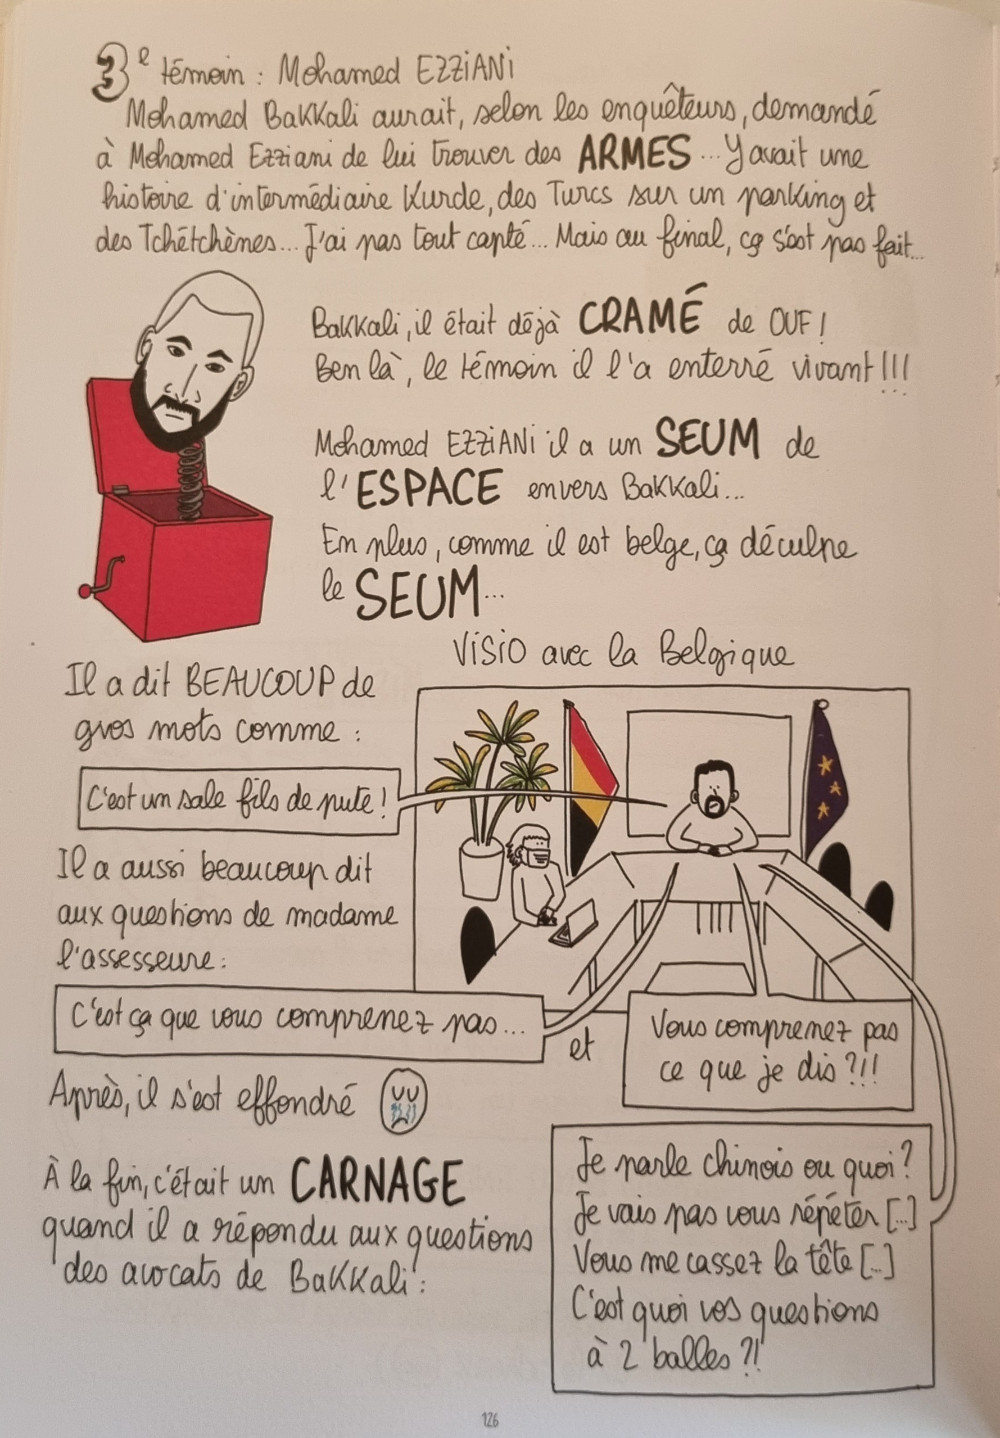 3e témoin : Mohamed EZZiANi
Mohamed Bakkali aurait, selon les enquêteurs, demandé
à Mohamed Ezziani de lui trouver des ARMES... Y avait une
histoire d'intermédiaire Kurde, des Turcs sur un parking et
des Tchétchènes... J'ai pas tout capté... Mais au final, ça s'est pas fait...
Bakkali, il était déjà CRAMÉ de OUF !
Ben là, le témoin il l'a enterré vivant !!!
Mohamed EZZiANi il a un SEUM de
l'ESPACE envers Bakkali...
En plus, comme il est belge, ça décuple
le SEUM...
ViSiO avec la Belgique
Il a dit BEAUCOUP de
gros mots comme :
C'est un sale fils de pute !
Il a aussi beaucoup dit
aux questions de madame
l'assesseure :
C'est ça que vous comprenez pas...
et
Vous comprenez pas
ce que je dis ?!!
Après, il s'est effondré
À la fin, c'était un CARNAGE
quand il a répondu aux questions
des avocats de Bakkali :
Je parle chinois ou quoi ?
Je vais pas vous répéter [...]
Vous me cassez la tête [...]
C'est quoi vos questions
à 2 balles ?!
126